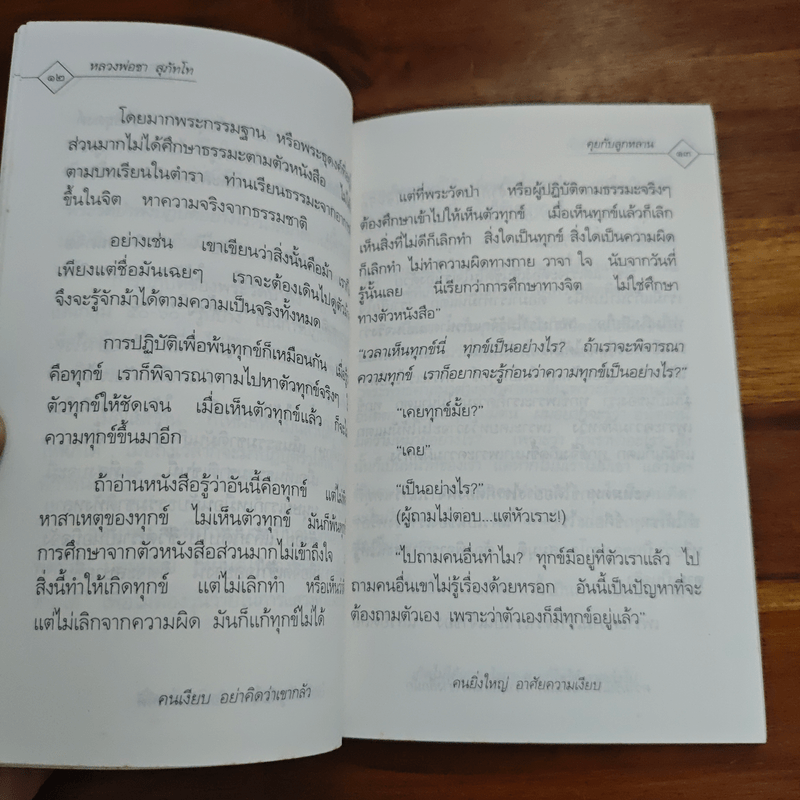 หลวงพ่อชา สุภัทโท
๑๒
โดยมากพระกรรมฐาน หรือพระธุดงค์
ส่วนมากไม่ได้ศึกษาธรรมะตามตัวหนังสือ
ตามบทเรียนในตำรา ท่านเรียนธรรมะจาก
ขึ้นในจิต หาความจริงจากธรรมชาติ
อย่างเช่น เขาเขียนว่าสิ่งนั้นคือม้า
เพียงแต่ชื่อมันเฉยๆ เราจะต้องเดินไปดู
จึงจะรู้จักม้าได้ตามความเป็นจริงทั้งหมด
การปฏิบัติเพื่อพ้นทุกข์ก็เหมือนกัน
คือทุกข์ เราก็พิจารณาตามไปหาตัวทุกข์จริงๆ
ตัวทุกข์ให้ชัดเจน เมื่อเห็นตัวทุกข์แล้ว
ความทุกข์ขึ้นมาอีก
ถ้าอ่านหนังสือรู้ว่าอันนี้คือทุกข์
หาสาเหตุของทุกข์ ไม่เห็นตัวทุกข์ มันก็พ้น
การศึกษาจากตัวหนังสือส่วนมากไม่เข้าถึงใจ
สิ่งนี้ทำให้เกิดทุกข์ แต่ไม่เลิกทำ
แต่ไม่เลิกจากความผิด มันก็แก้ทุกข์ไม่ได้
คนเงียบ อย่าคิดว่าเขากลัว
คุยกับลูกหลาน
๑๓
แต่ที่พระวัดป่า หรือผู้ปฏิบัติตามธรรมะจริงๆ
ต้องศึกษาเข้าไปให้เห็นตัวทุกข์ เมื่อเห็นทุกข์แล้วก็เลิก
เห็นสิ่งที่ไม่ดีก็เลิกทำ สิ่งใดเป็นทุกข์ สิ่งใดเป็นความผิด
ก็เลิกทำ ไม่ทำความผิดทางกาย วาจา ใจ นับจากวันที่
รู้นั้นเลย นี่เรียกว่าการศึกษาทางจิต ไม่ใช่ศึกษา
ทางตัวหนังสือ”
“เวลาเห็นทุกข์นี่ ทุกข์เป็นอย่างไร? ถ้าเราจะพิจารณา
ความทุกข์ เราก็อยากจะรู้ก่อนว่าความทุกข์เป็นอย่างไร?”
“เคยทุกข์มั้ย?”
“เคย”
“เป็นอย่างไร?”
(ผู้ถามไม่ตอบ...แต่หัวเราะ!)
“ไปถามคนอื่นทำไม? ทุกข์มีอยู่ที่ตัวเราแล้ว ไป
ถามคนอื่นเขาไม่รู้เรื่องด้วยหรอก อันนี้เป็นปัญหาที่จะ
ต้องถามตัวเอง เพราะว่าตัวเองก็มีทุกข์อยู่แล้ว”
คนยิ่งใหญ่ อาศัยความเงียบ